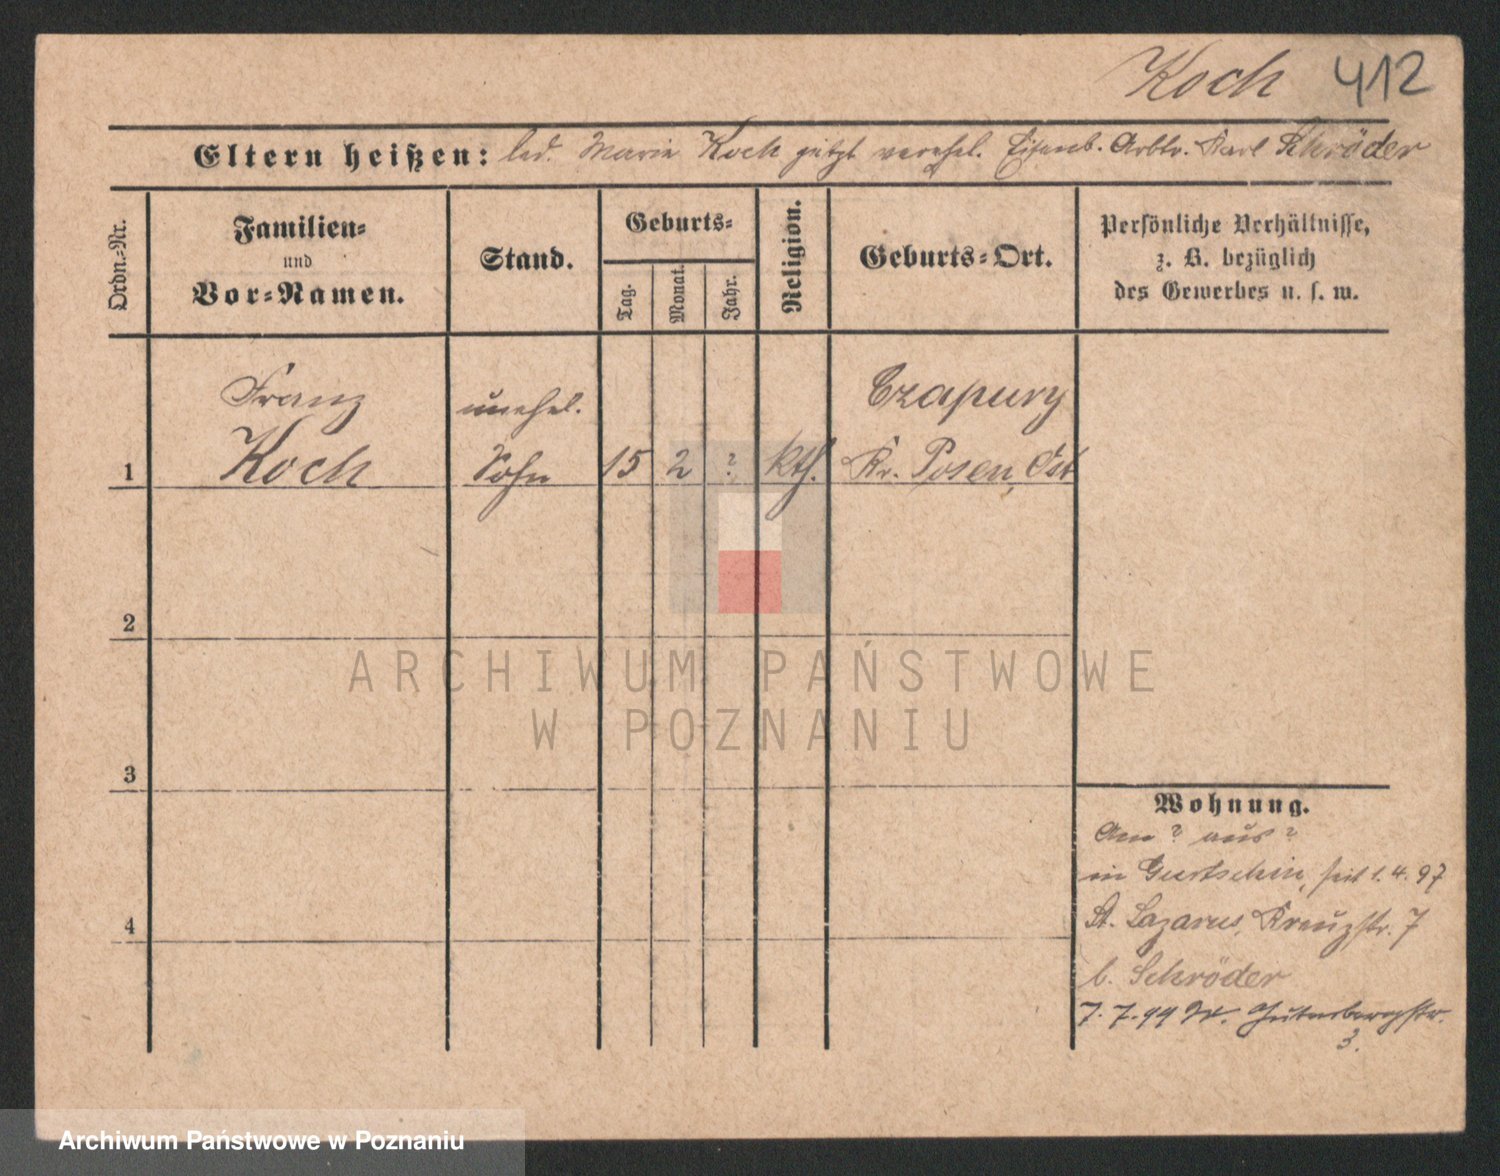 Koch 412
Eltern heißen: led. Marie Koch jetzt verehel. Eisenb. Arbtr. Karl Schröder
Ordn.-Nr.
Familien-
und
Vor-Namen.
Stand.
Geburts-
Tag.
Monat.
Jahr.
Religion.
Geburts-Ort.
Persönliche Verhältnisse,
z. B. bezüglich
des Gewerbes u. s. w.
Franz unehel. Czapury
1 Koch Sohn 15 2 ? kth. Kr. Posen, Ost
2
ARCHIWUM PAŃSTWOWE
W POZNANIU
3
Wohnung.
Am ? aus ?
in Gurtschin, seit 1.4.97
4
St. Lazarus, Kreuzstr. 7
b. Schröder
7.7.99 Gutenbergstr.
3.
Archiwum Państwowe w Poznaniu